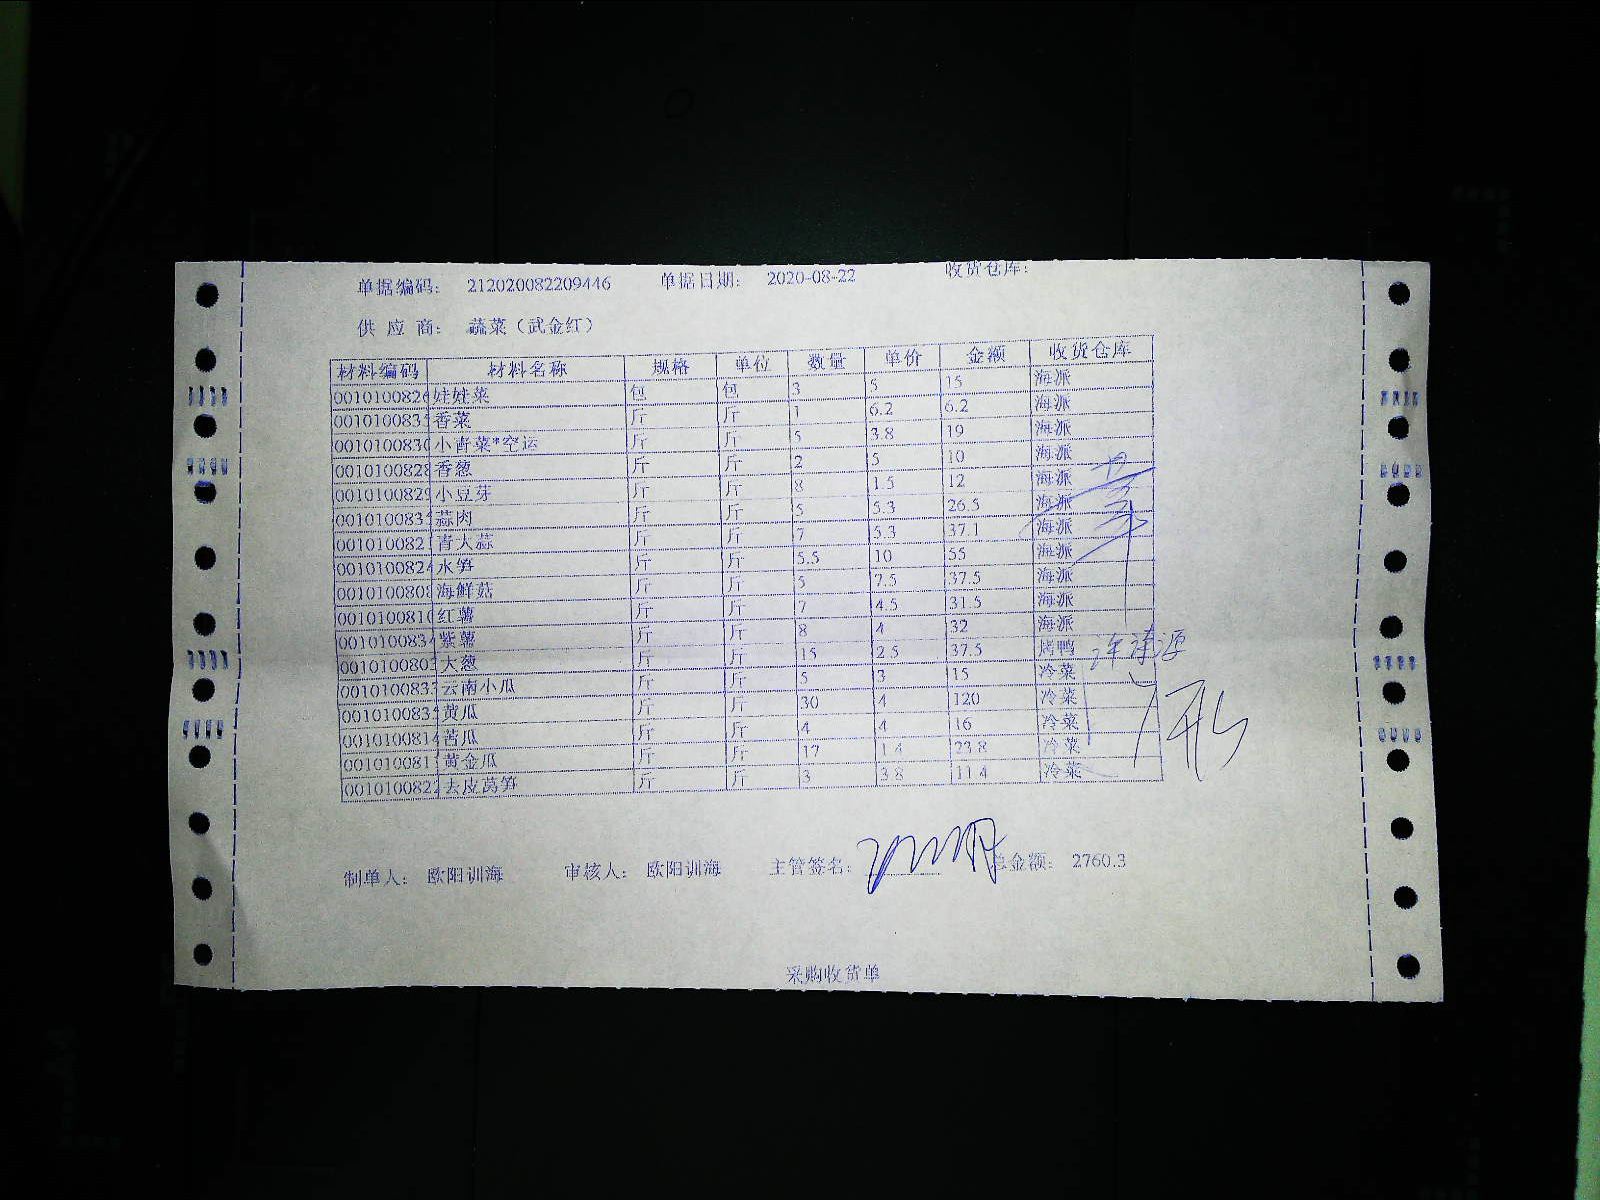 单据编码: 212020082209446 单据日期: 2020-08-22 收货仓库:
供 应 商: 蔬菜（武金红）
材料编码 材料名称 规格 单位 数量 单价 金额 收货仓库
0010100826 娃娃菜 包 包 3 5 15 海派
001010083 香菜 斤 斤 1 6.2 6.2 海派
0010100830 小青菜*空运 斤 斤 5 3.8 19 海派
0010100828 香葱 斤 斤 2 5 10 海派
0010100829 小豆芽 斤 斤 8 1.5 12 海派
001010083 蒜肉 斤 斤 5 5.3 26.5 海派
001010082 青大蒜 斤 斤 7 5.3 37.1 海派
0010100824 水笋 斤 斤 5.5 10 55 海派
0010100808 海鲜菇 斤 斤 5 7.5 37.5 海派
0010100810 红薯 斤 斤 7 4.5 31.5 海派
0010100834 紫薯 斤 斤 8 4 32 海派
001010080 大葱 斤 斤 15 2.5 37.5 烤鸭
001010083 云南小瓜 斤 斤 5 3 15 冷菜
001010083 黄瓜 斤 斤 30 4 120 冷菜
0010100814 苦瓜 斤 斤 4 4 16 冷菜
001010081 黄金瓜 斤 斤 17 1.4 23.8 冷菜
0010100822 去皮莴笋 斤 斤 3 3.8 11.4 冷菜
制单人: 欧阳训海 审核人: 欧阳训海 主管签名: 总金额: 2760.3
采购收货单